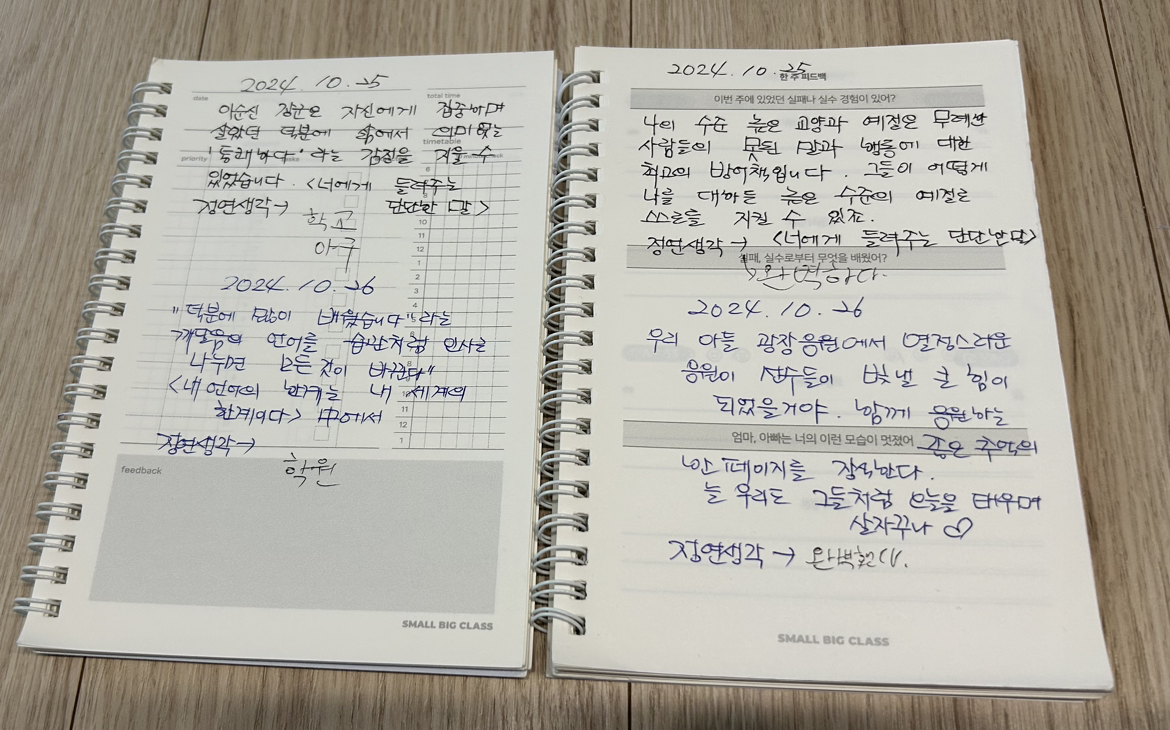 2024. 10. 25
date
total time
이순신 장군은 자신에게 집중하며
살았던 덕분에 삶에서 의미없는
timetable
priority
'통쾌하다' 라는 감정을 지울 수
있었습니다. <너에게 들려주는
정연생각→ 단단한 말>
학교
야구
2024. 10. 26
"덕분에 많이 배웠습니다" 라는
깨달음의 언어를 습관처럼 인사로
나누면 모든 것이 바뀐다"
<내 언어의 한계는 내 세계의
한계이다> 中에서
정연생각→
학원
feedback
SMALL BIG CLASS
2024. 10. 25
한 주 피드백
이번 주에 있었던 실패나 실수 경험이 있어?
나의 수준 높은 교양과 예절은 무례한
사람들의 못된 말과 행동에 대한
최고의 방어책입니다. 그들이 어떻게
나를 대하든 높은 수준의 예절로
스스로를 지킬 수 있죠.
정연생각 → <너에게 들려주는 단단한 말>
실패, 실수로부터 무엇을 배웠어?
완벽하다.
2024. 10. 26
우리 아들 광장응원에서 열정스러운
응원이 선수들이 빛낼 큰 힘이
되었을거야. 함께 응원하는
엄마, 아빠는 너의 이런 모습이 멋졌어
같은 추억의
한 페이지를 장식한다.
늘 우리도 그들처럼 오늘을 태우며
살자꾸나 ♡
정연생각 →
SMALL BIG CLASS